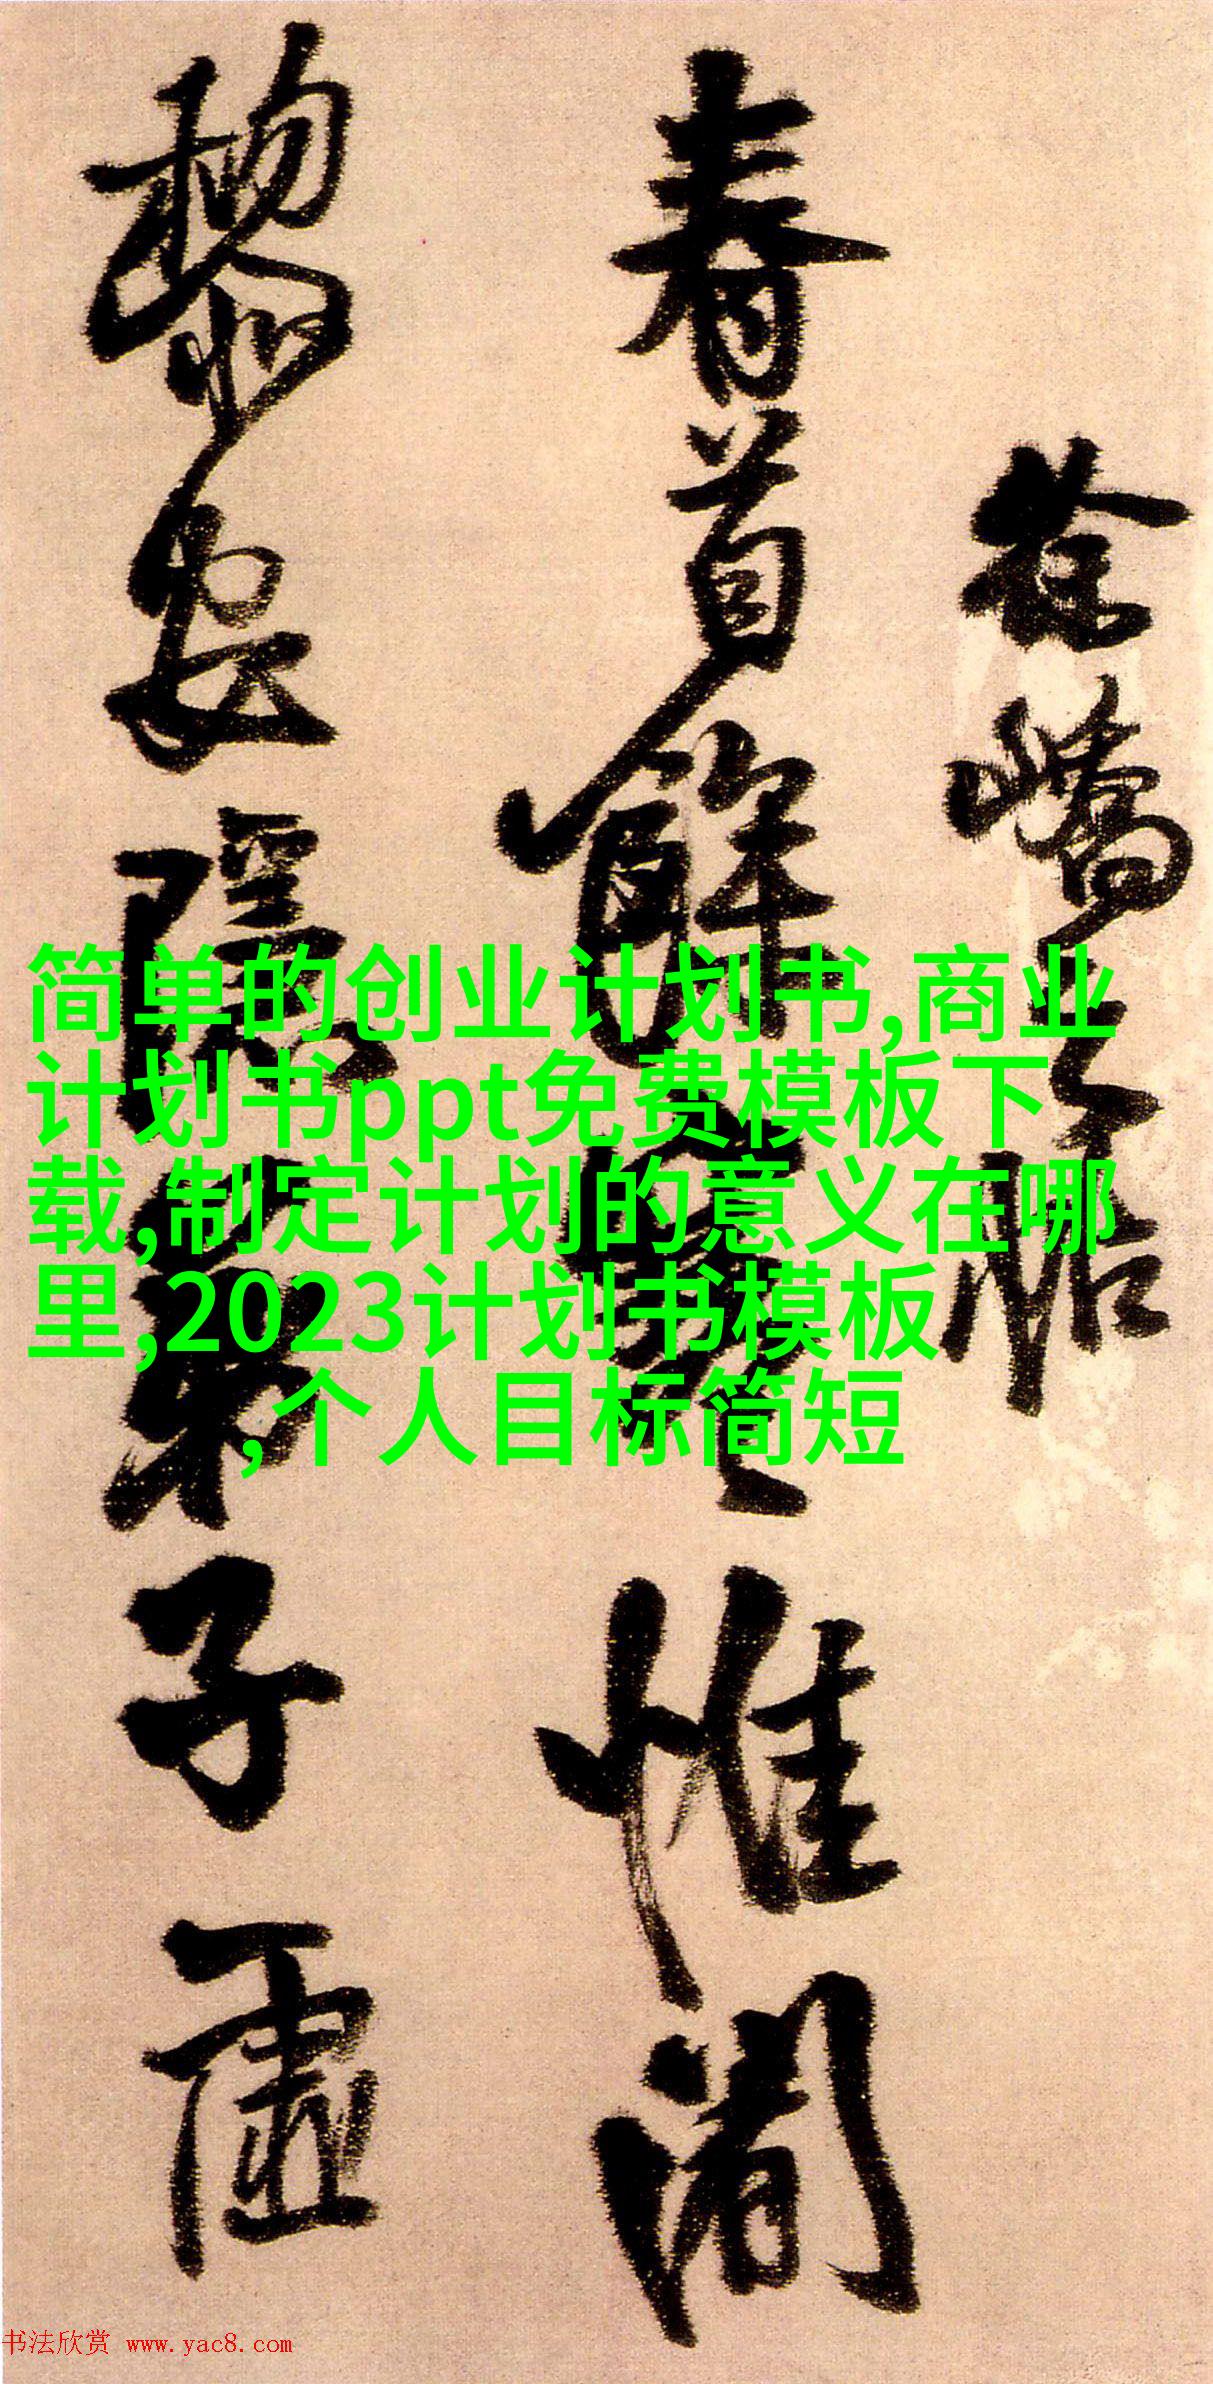 徐峤之帖
春首餘寒惟闍
黎安隱弟子虛
简单的创业计划书,商业
计划书ppt免费模板下
载,制定计划的意义在哪
里,2023计划书模板
,个人目标简短
书法欣赏 www.yac8.com